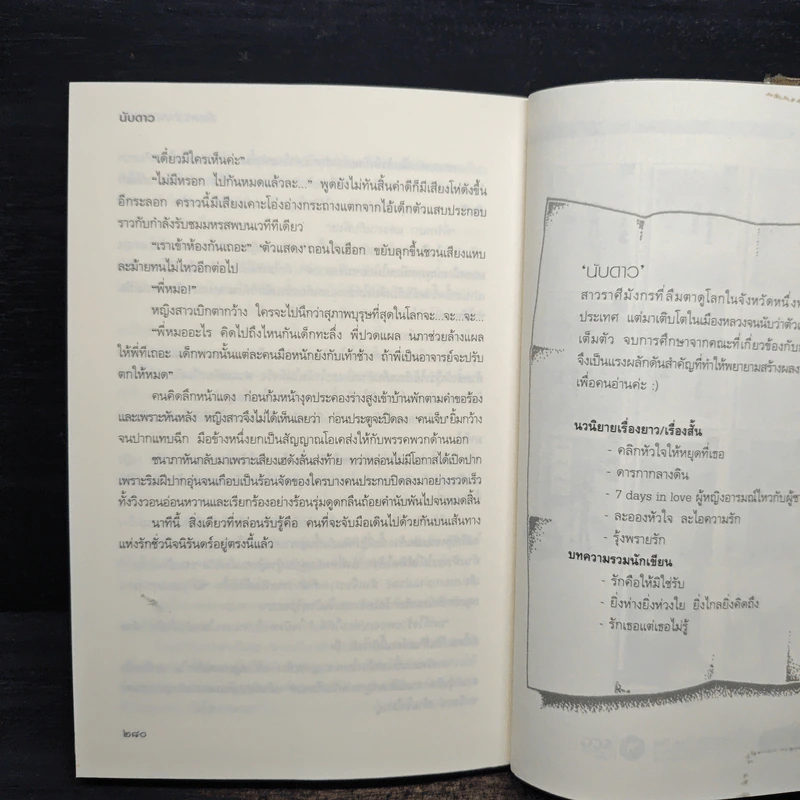 นับดาว
“เดี๋ยวมีใครเห็นค่ะ”
“ไม่มีหรอก ไปกันหมดแล้วละ...” พูดยังไม่ทันสิ้นคำดีก็มีเสียงโห่ดังขึ้น
อีกระลอก คราวนี้มีเสียงเคาะโอ่งอ่างกระถางแตกจากไอ้เด็กตัวแสบประกอบ
ราวกับกำลังรับชมมหรสพบนเวทีทีเดียว
“เราเข้าห้องกันเถอะ” ‘ตัวแสดง’ ถอนใจเฮือก ขยับลุกขึ้นชวนเสียงแหบ
ละม้ายทนไม่ไหวอีกต่อไป
“พี่หมอ!”
หญิงสาวเบิกตากว้าง ใครจะไปนึกว่าสุภาพบุรุษที่สุดในโลกจะ...จะ...จะ...
“พี่หมออะไร คิดไปถึงไหนกันเด็กทะลึ่ง พี่ปวดแผล นภาช่วยล้างแผล
ให้พี่ทีเถอะ เด็กพวกนั้นแต่ละคนมือหนักยังกับเท้าช้าง ถ้าพี่เป็นอาจารย์จะปรับ
ตกให้หมด”
คนคิดลึกหน้าแดง ก่อนก้มหน้างุดประคองร่างสูงเข้าบ้านพักตามคำขอร้อง
และเพราะหันหลัง หญิงสาวจึงไม่ได้เห็นเลยว่า ก่อนประตูจะปิดลง ‘คนเจ็บ’ ยิ้มกว้าง
จนปากแทบฉีก มือข้างหนึ่งยกเป็นสัญญาณโอเคส่งให้กับพรรคพวกด้านนอก
ชนาภาหันกลับมาเพราะเสียงเฮดังลั่นส่งท้าย ทว่าหล่อนไม่มีโอกาสได้เปิดปาก
เพราะริมฝีปากอุ่นจนเกือบเป็นร้อนจัดของใครบางคนประกบปิดลงมาอย่างรวดเร็ว
ทั้งวิงวอนอ่อนหวานและเรียกร้องอย่างร้อนรุ่มดูดกลืนถ้อยคำนับพันไปจนหมดสิ้น
นาทีนี้ สิ่งเดียวที่หล่อนรับรู้คือ คนที่จะจับมือเดินไปด้วยกันบนเส้นทาง
แห่งรักชั่วนิจนิรันดร์อยู่ตรงนี้แล้ว
๒๘๐
‘นับดาว’
สาวราศีมังกรที่ลืมตาดูโลกในจังหวัดหนึ่ง
ประเทศ แต่มาเติบโตในเมืองหลวงจนนับว่าตัว
เต็มตัว จบการศึกษาจากคณะที่เกี่ยวข้องกับ
จึงเป็นแรงผลักดันสำคัญที่ทำให้พยายามสร้างผลง
เพื่อคนอ่านค่ะ :)
นวนิยายเรื่องยาว/เรื่องสั้น
- คลิกหัวใจให้หยุดที่เธอ
- ดารกากลางดิน
- 7 days in love ผู้หญิงอารมณ์ไหวกับผู้ช
- ละอองหัวใจ ละไอความรัก
- รุ้งพรายรัก
บทความรวมนักเขียน
- รักคือให้มิใช่รับ
- ยิ่งห่างยิ่งห่วงใย ยิ่งไกลยิ่งคิดถึง
- รักเธอแต่เธอไม่รู้